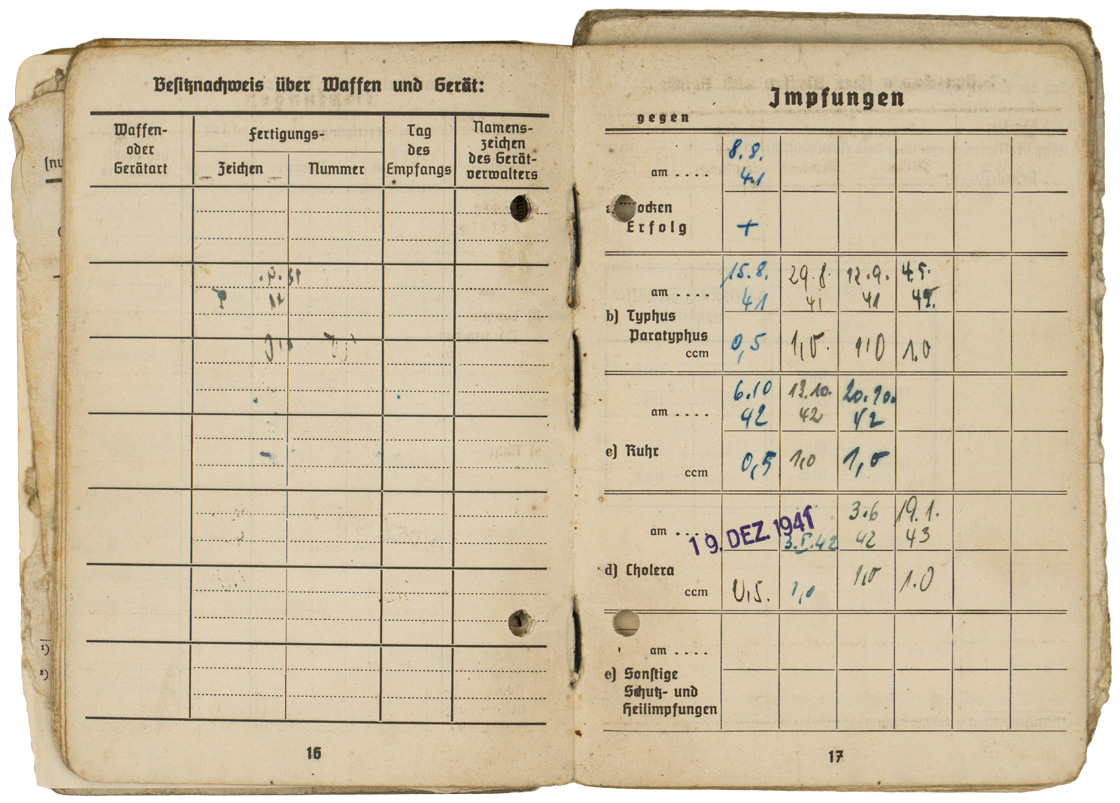 Besitznachweis über Waffen und Gerät:
Waffen-
oder
Gerätart
Fertigungs-
Zeichen
Nummer
Tag
des
Empfangs
Namens-
zeichen
des Gerät-
verwalters
16
Impfungen
gegen
8.8.
am . . . . 41
ocken
Erfolg +
15.8. 29.8. 12.9.
am . . . . 41 41 41
b) Typhus
Paratyphus
ccm 0,5 1,0 1,0 1.0
6.10 13.10. 20.10.
am . . . . 42 42 42
c) Ruhr
ccm 0,5 1,0 1,0
3.6 19.1.
am . . . . 19. DEZ. 1941 42 43
d) Cholera
ccm 0,5. 1,0 1,0 1.0
am . . . .
e) Sonstige
Schutz- und
Heilimpfungen
17